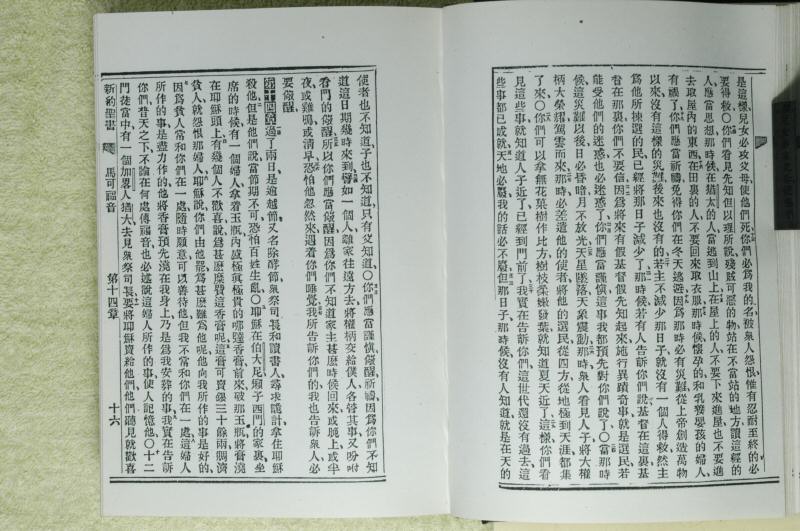 是這樣兒女必攻父母使他們死你們必爲我的名被衆人怨恨惟有忍耐至終的必
要得救○你們看見先知但以理所說殘賊可惡的物站在不當站的地方讀這經的
人應當思想那時候在猶太的人當逃到山上在屋上的人不要下來進屋也不要進
去取屋內的東西在田裏的人不要回來取衣服那時候懷孕的和乳養嬰孩的婦人
有禍了你們應當祈禱免得你們在冬天逃避因爲那時必有災難從上帝創造萬物
以來沒有這樣的災難後來也沒有的若主不減少那日子就沒有一個人得救然主
爲他所揀選的民已經將那日子減少了那時候若有人告訴你們說基督在這裏基
督在那裏你們不要信因爲將來有假基督假先知起來施行異蹟奇事就是選民若
能受他們的迷惑也必迷惑了你們應當謹愼這事我都預先對你們說了○當那時
候這災難以後日必昏暗月不放光天星墜落天象震動那時衆人看見人子將大權
柄大榮耀駕雲而來那時必差遣他的使者將他的選民從四方從地極到天涯都集
了來○你們可以拿無花菓樹作比方樹枝柔嫩發葉就知道夏天近了這樣你們看
見這些事就知道人子近了已經到門前了我實在告訴你們這世代還沒有過去這
些事都已成就天地必廢我的話必不廢但那日子那時候沒有人知道就是在天的
使者也不知道子也不知道只有父知道○你們應當謹愼儆醒祈禱因爲你們不知
道這日期幾時來到譬如一個人離家往遠方去將權柄交給僕人各管其事又吩咐
看門的儆醒所以你們應當儆醒因爲你們不知道家主甚麼時候回來或晚上或半
夜或雞鳴或清早恐怕他忽然來遇着你們睡覺我所告訴你們的我也告訴衆人必
要儆醒
第十四章過了兩日是逾越節又名除酵節衆祭司長和讀書人尋求詭計拿住耶穌
殺他但是他們說當節期不可恐怕百姓生亂○耶穌在伯大尼癩子西門的家裏坐
席的時候有一個婦人拿着玉瓶內盛極眞極貴的哪噠香膏前來破那玉瓶將膏澆
在耶穌頭上有幾個人不歡喜說爲甚麼糜費這香膏呢這膏可賣錢三十餘兩賙濟
貧人就怨恨那婦人耶穌說你們由他罷爲甚麼難爲他呢他向我所作的事是好的
因爲貧人常和你們在一處隨時願意可以善待他但我不常和你們在一處這婦人
所作的事是盡力作的他將香膏預先澆在我身上乃是爲我安葬的事我實在告訴
你們普天之下不論在何處傳福音也必述說這婦人所作的事使人記憶他○十二
門徒當中有一個加畧人猶大去見衆祭司長要將耶穌賣給他們他們聽見就歡喜
新約聖書 馬可福音 第十四章 十六